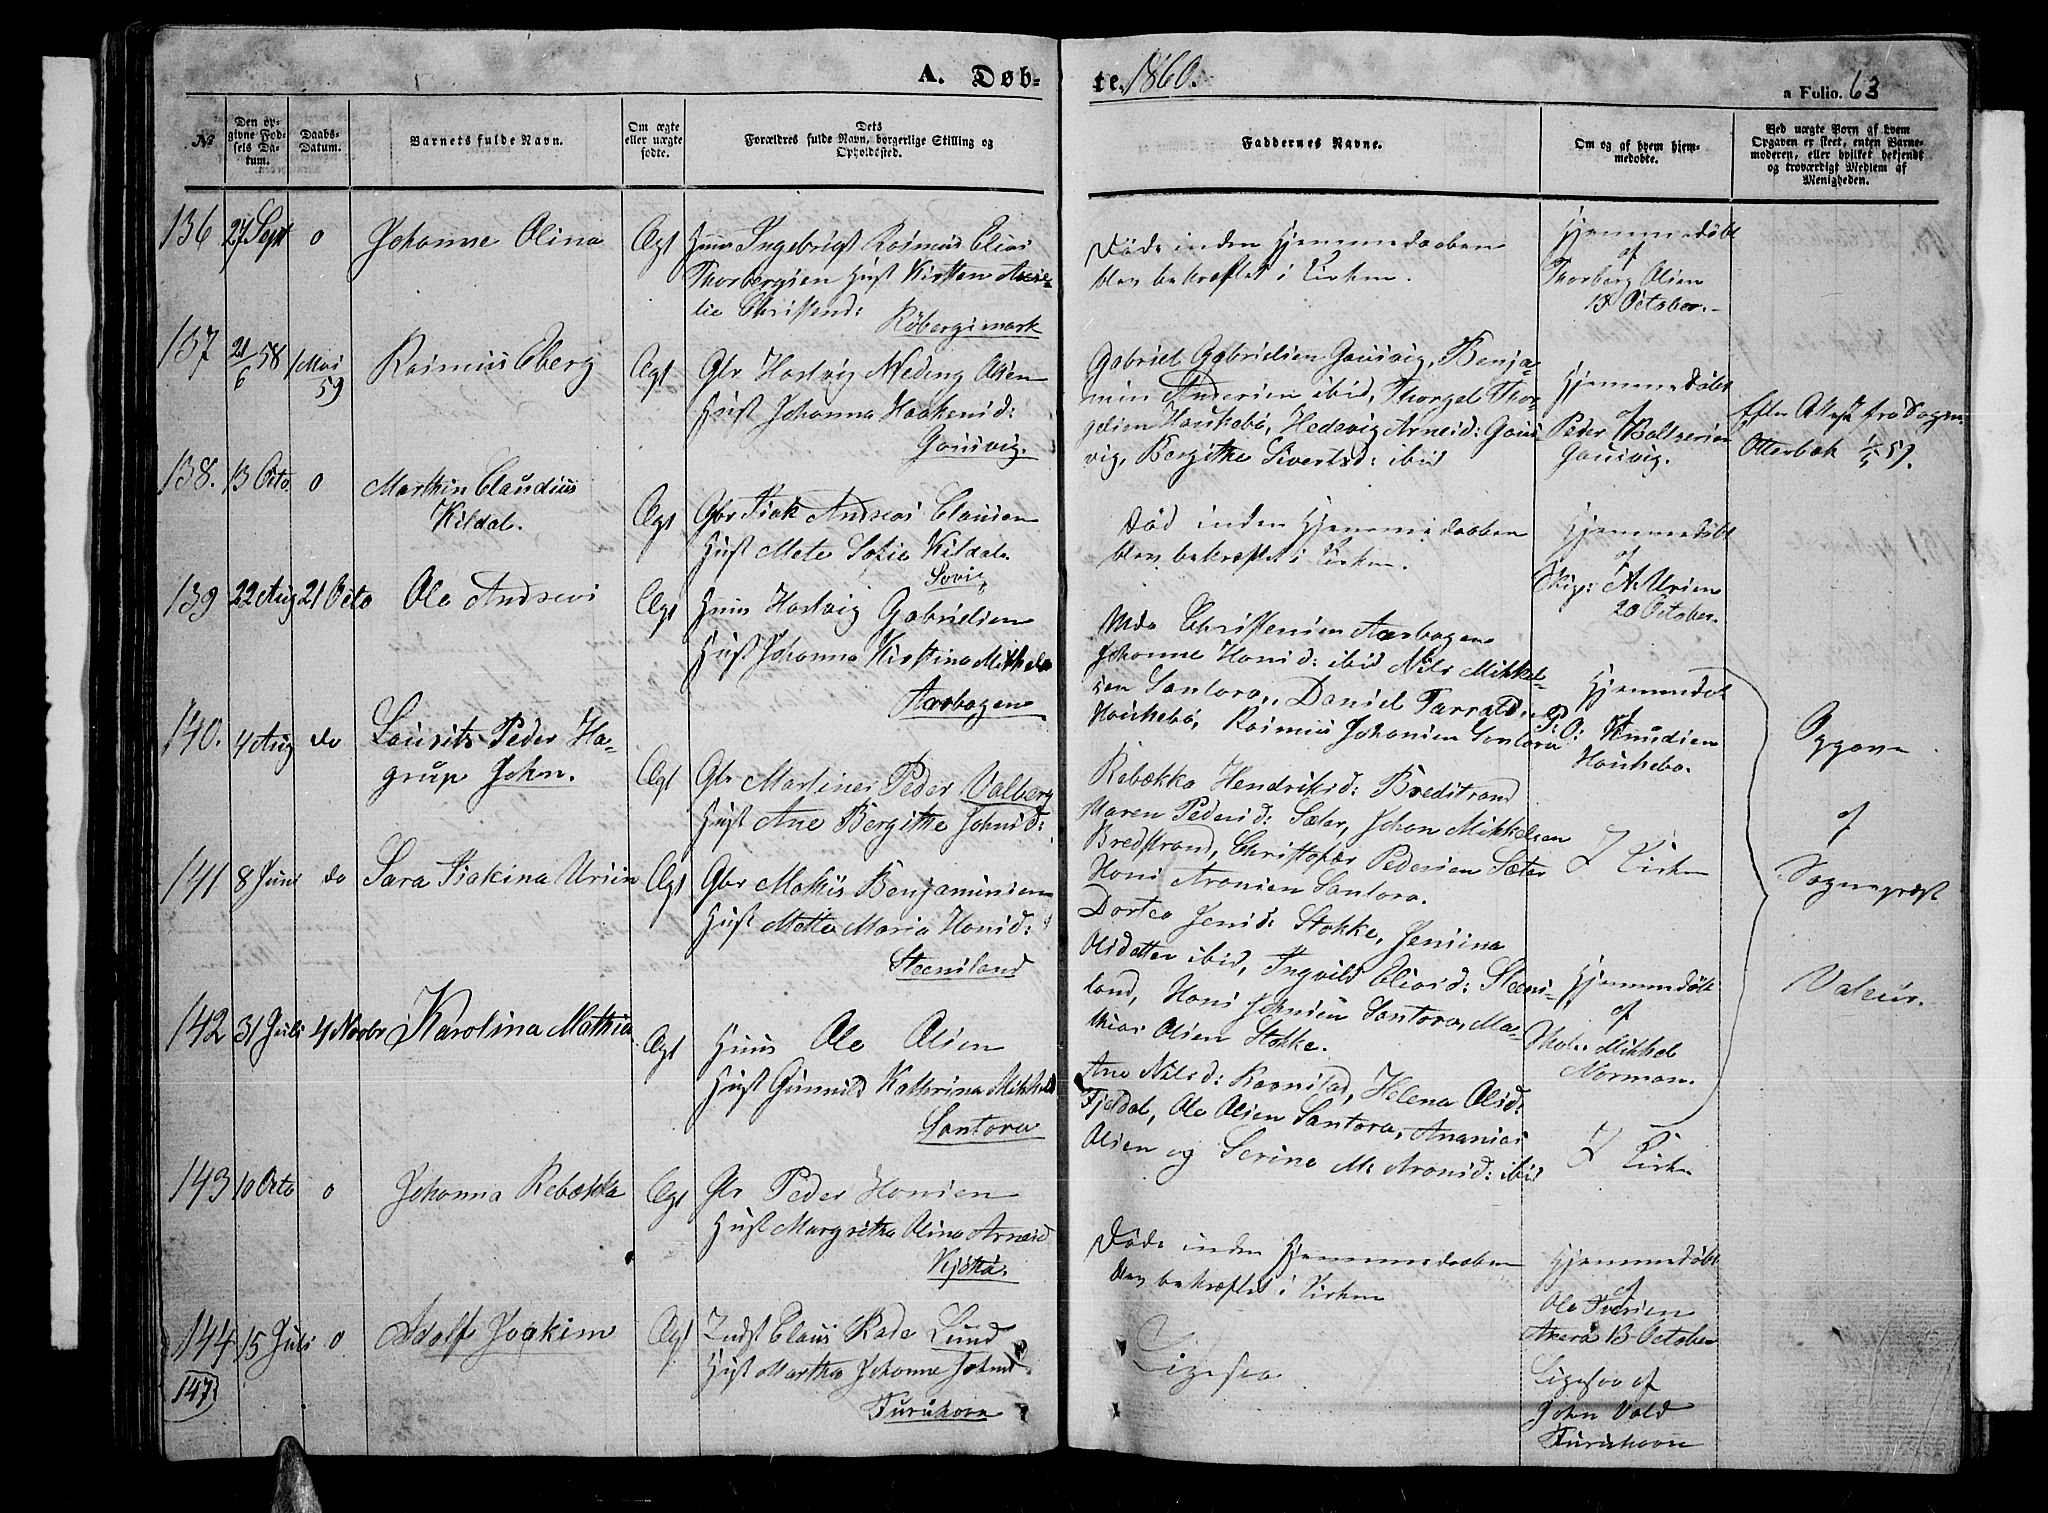 A. Døb-
te. 1860.
a Folio. 63
№
Den op-
givne Fød-
sels Da-
tum.
Daabs-
Datum.
Barnets fulde Navn.
Om ægte
eller uægte
fødte.
Dets
Forældres fulde Navn, borgerlige Stilling og
Opholdssted.
Faddernes Navne.
Om og af hvem hjem-
medøbte.
Ved uægte Børn af hvem
Opgaven er skeet, enten Barne-
moderen, eller hvilket bekjendt
og troværdigt Medlem af
Menigheden.
136 27 Sept 0 Johanne Olina Ægt Huus Ingebrigt Rasmus Elias
Thorbergsen Hust Kirsten
Christensd:
Røbergsmark
Døde inden Hjemmedaaben
blev bekræftet i Kirken.
Hjemmedøbt
af
Thorberg Olsen
18 October.
137 21/6 58 1 Mai
59
Rasmus Eberg Ægt Gbr Hartvig Meding Olsen
Hust Johanna Haakensd:
Gausvig.
Gabriel Gabrielsen Gausvig, Benja-
min Andersen ibid, Thorgel Thor-
gelsen Haukebø, Hedevig Arnesd: Gaus
vig, Bergithe Sivertsd: ibid
Hjemmedøbt
af
Peder Baltzersen
Gausvig.
Efter Attest fra Sogn.
Otterbek 1/5 59.
138. 13 Octo 0 Marthin Claudius
Kildal.
Ægt Gbr Isak Andreas Clausen
Hust Mete Sofie Kildal.
Sovig
Død inden Hjemmedaaben
blev bekræftet i Kirken.
Hjemmedøbt
af
Skip: A. Ursin
20 October.
139 22 Aug 21 Octo Ole Andreas Ægt Huus Hartvig Gabrielsen
Hust Johanna Kirstina Mikkels
Aarbogen
Christensen Aarbogen
Johanne Hansd: ibid Nils Mikkel-
sen Santora, Daniel Tarrald
Haukebø, Rasmus Johansen Santora
Hjemmedøbt
af
P: O: Knudsen
Haukebø.
140. 4 Aug do Laurits Peder Ha-
grup John.
Ægt Gbr Martines Peder Valberg
Hust Ane Bergithe Johnsd:
Rebække Hendriksd: Bredstrand
Maren Pedersd: Sæter, Johan Mikkelsen
Bredstrand, Christofer Pedersen Sæter
Hans Aronsen Santora.
I Kirken
141 8 Juni do Sara Isakina Ursin Ægt Gbr Mathis Benjaminsen
Hust Mette Maria Hansd:
Steensland
Dortea Jensd: Stokke, Jensina
Olsdatter ibid, Ingvild Eliasd: Steens-
land, Hans Johnsen Santora, Ma-
thias Olsen Stokke.
Hjemmedøbt
af
Mikkel
Norman.
142 31 Juli 4 Novbr Karolina Mathia Ægt Huus Ole Olsen
Hust Gunnild Kathrina Mikkels
Santora
Ane Nilsd: Ravnstad, Helena Olsd:
Fjeldal, Ole Olsen Santora, Ananias
Olsen og Serine M. Aronsd: ibid
I Kirken
Opgave
af
Sognepræst
Valeur.
143 10 Octo 0 Johanna Rebækka Ægt Gbr Peder Hansen
Hust Margretha Olina Arnesd
Kjøta.
Døde inden Hjemmedaaben
blev bekræftet i Kirken
Hjemmedøbt
af
Ole Iversen
13 October
144 15 Juli 0 Adolf Joakim Ægt Indst Claus Rade Lund
Hust Marthe Johanne Johnsd.
Furuhavn
Ligesaa
Ligesaa af
John Vold
Furuhavn
147